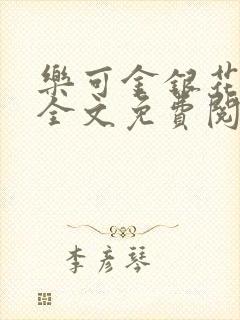 樂可金銀花
全文免費閱
李彦琴